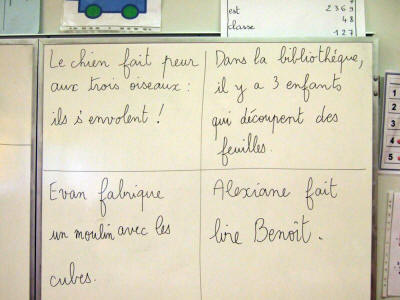 est 2369
48
classe
127
Le chien fait peur
aux trois oiseaux :
ils s'envolent !
Dans la bibliothèque,
il y a 3 enfants
qui découpent des
feuilles.
Evan fabrique
un moulin avec les
cubes.
Alexiane fait
lire Benoît.
1
2
3
4
5